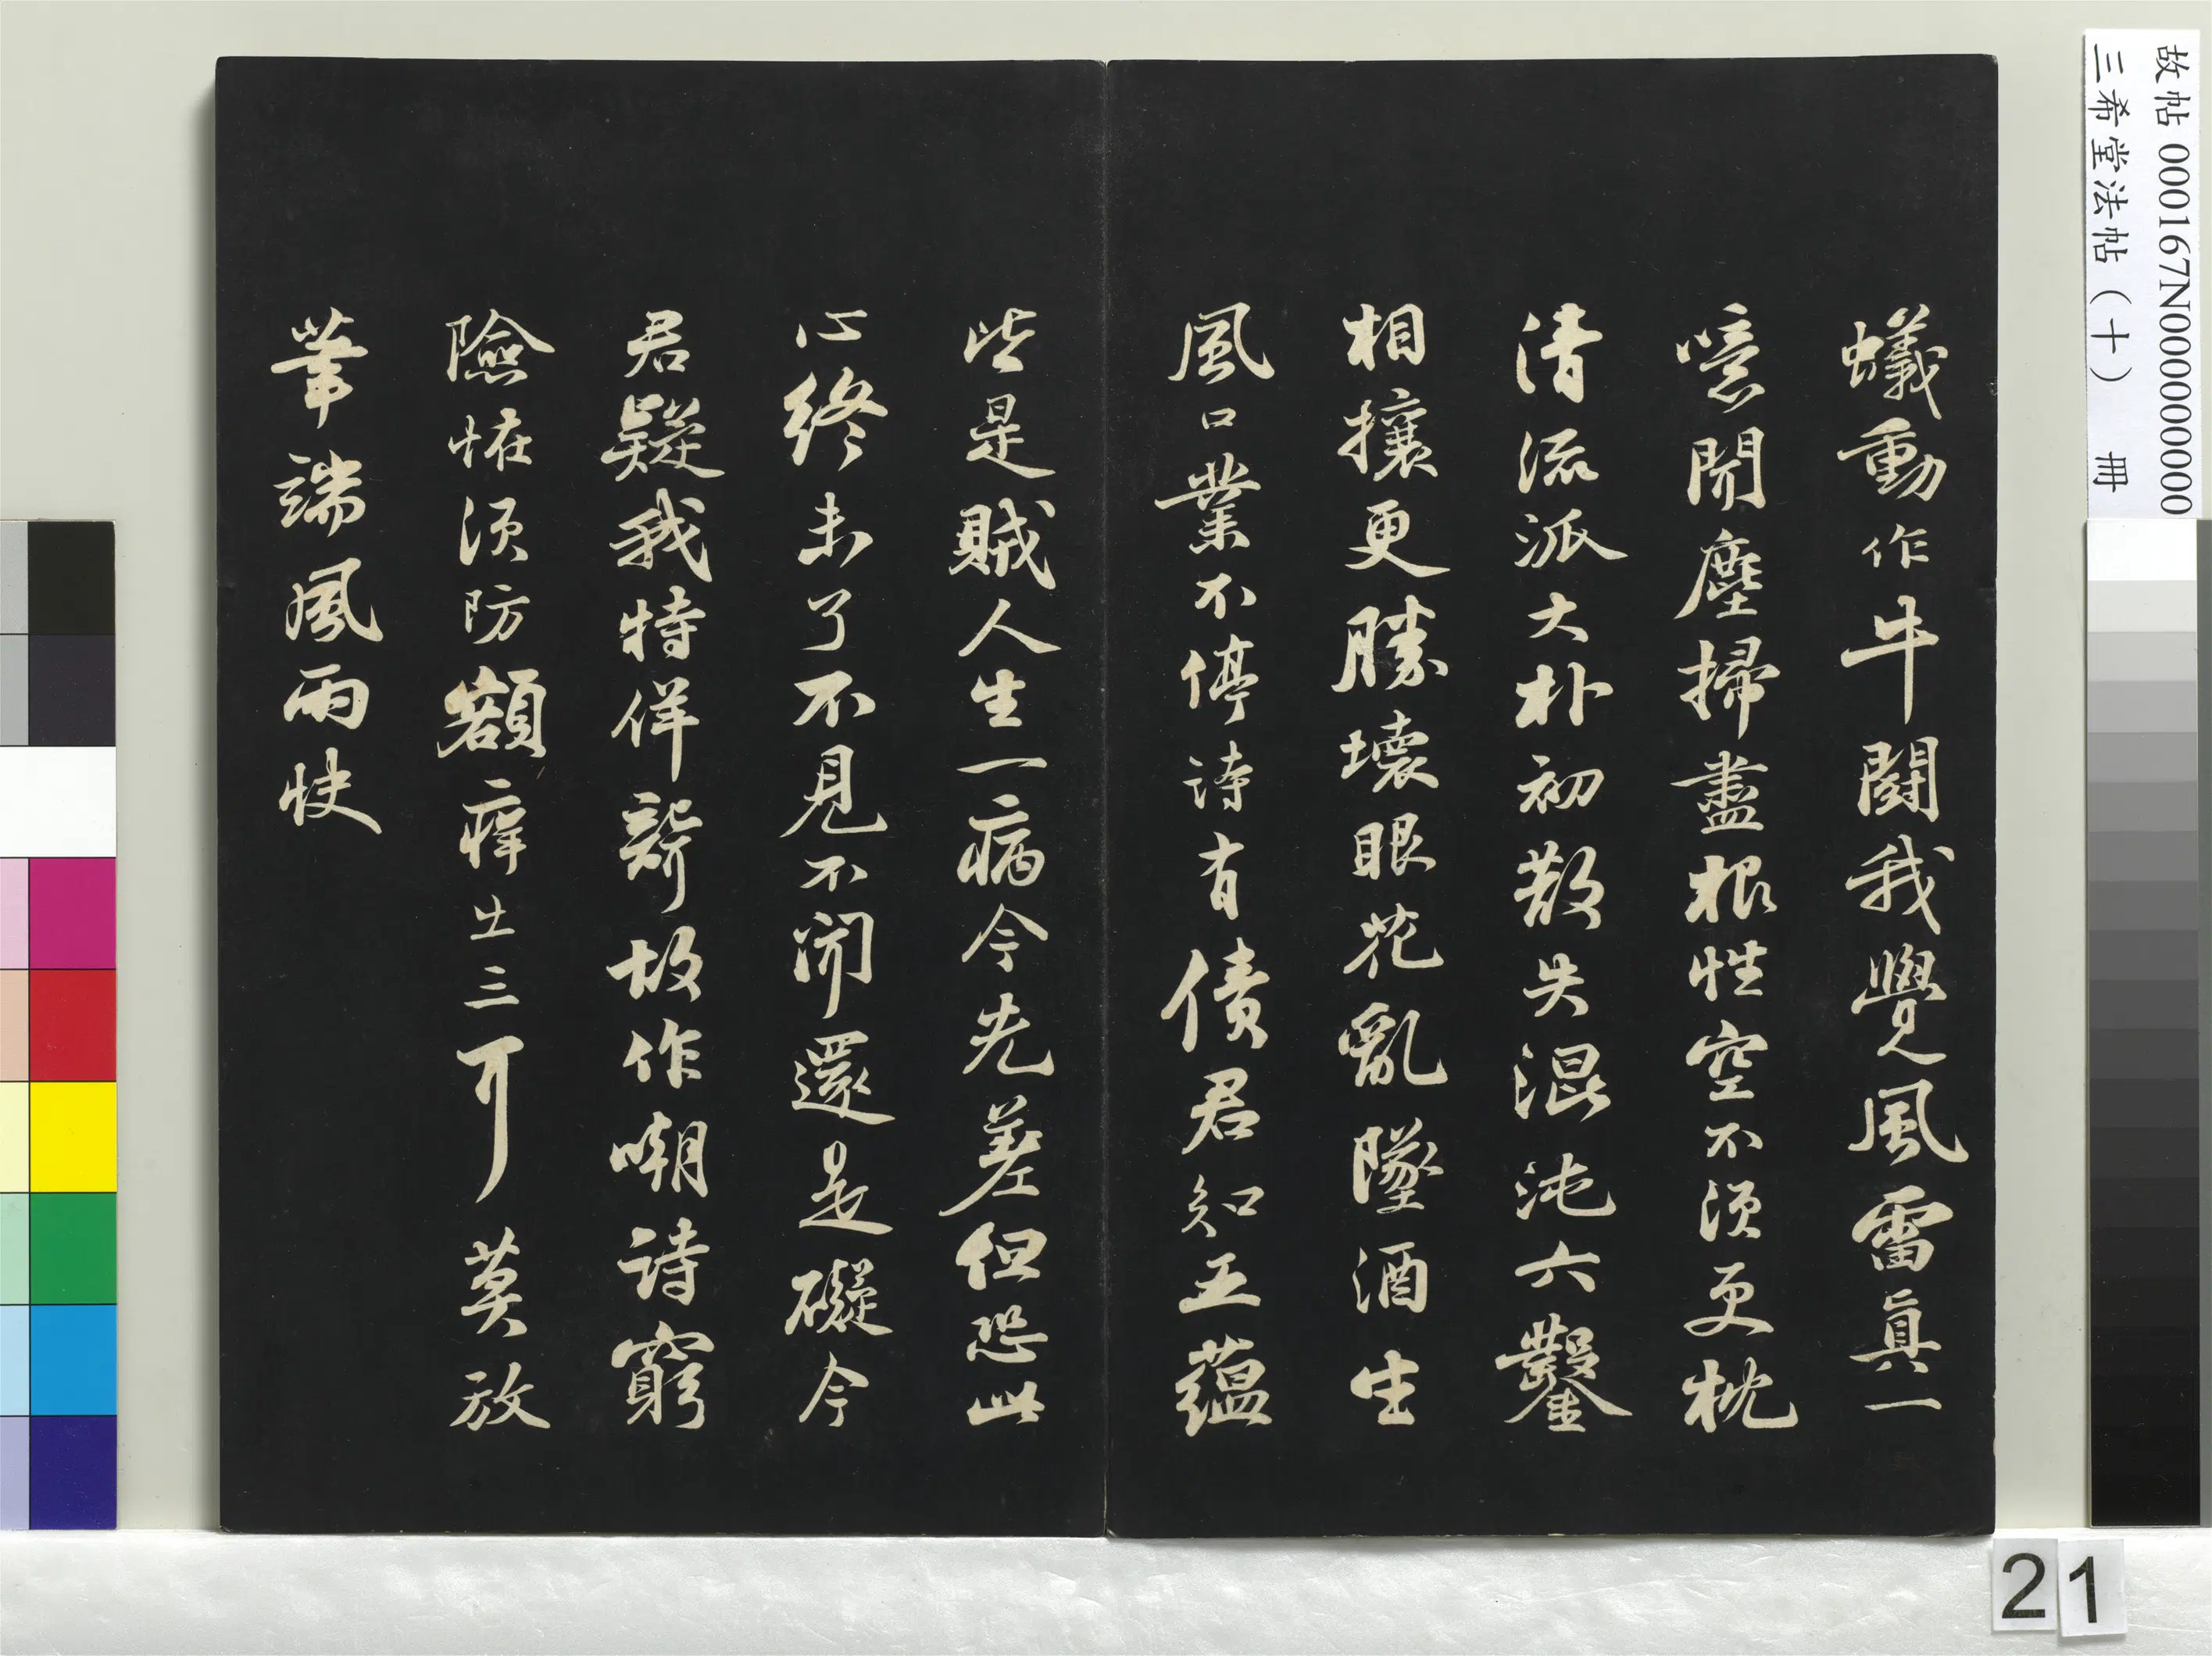 蟻動作牛鬪我覺風雷真一
噫聞塵掃盡根性空不須更枕
清流派大朴初散失混沌六鑿
相攘更勝壞眼花亂墜酒生
風口業不停詩有債君知五蘊
皆是賊人生一病今先差但恐此
心終未了不見不聞還是礙今
君疑我特佯聾故作嘲詩窮
險怪須防額癢出三耳莫放
筆端風雨快
故帖 000167N000000000
三希堂法帖（十） 冊
21